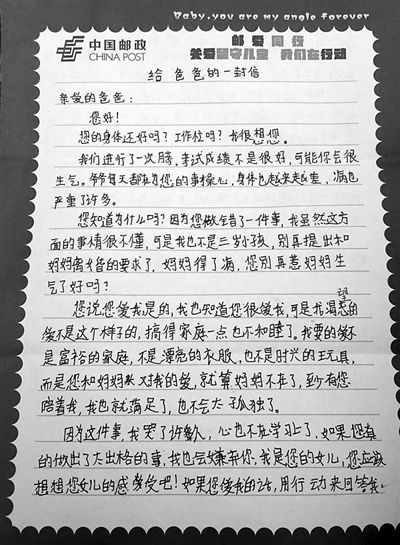 Baby, you are my angle forever
中国邮政
CHINA POST
邮爱同行
关爱留守儿童 我们在行动
给爸爸的一封信
亲爱的爸爸:
您好!
您的身体还好吗?工作忙吗?我很想您。
我们进行了一次月考,考试成绩不是很好,可能你会很
生气。爷爷每天都在为您的事操心,身体也越来越差,病也
严重了许多。
您知道为什么吗?因为您做错了一件事,我虽然这方
面的事情很不懂,可是我也不是三岁小孩,别再提出和
妈妈离婚的要求了,妈妈得了病,您别再惹妈妈生
气了好吗?
您说您爱我是的,我也知道您很爱我,可是我渴望的
爱不是这个样子的,搞得家庭一点也不和睦了。我要的爱不
是富裕的家庭,不是漂亮的衣服,也不是时兴的玩具,
而是您和妈妈对我的爱,就算妈妈不在了,至少有您
陪着我,我也就满足了,也不会太孤独了。
因为这件事,我哭了许多,心也不在学习上了,如果您真
的做出了太出格的事,我也会嫌弃你,我是您的女儿,您应该
想想您女儿的感受吧!如果您爱我的话,用行动来回答我。